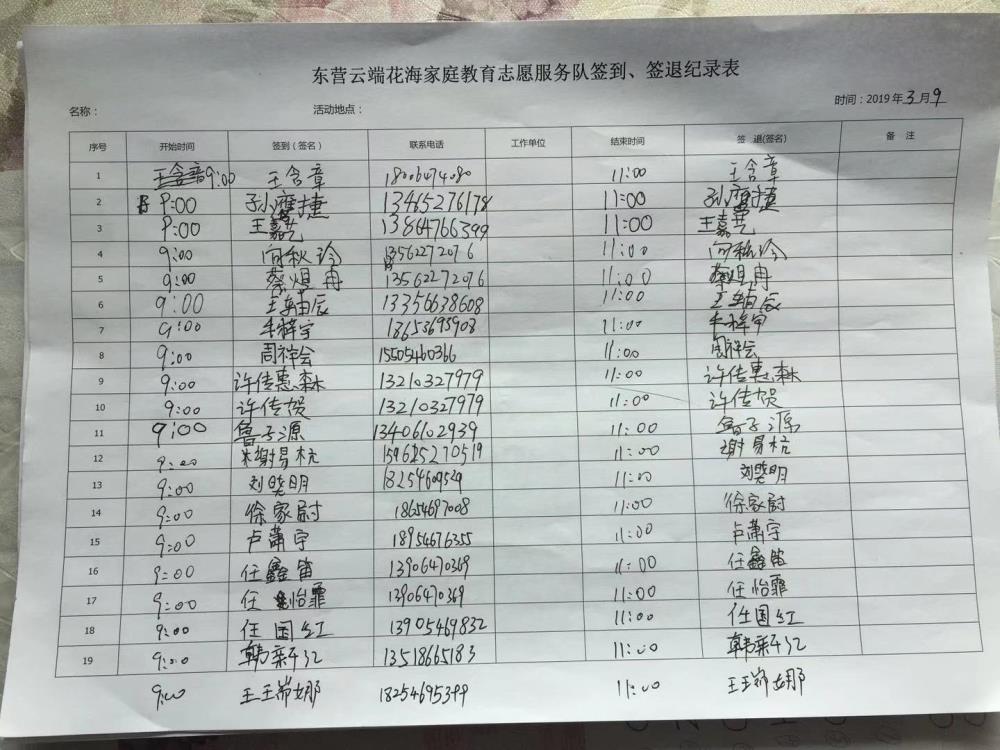 东营云端花海家庭教育志愿服务队签到、签退纪录表
名称： 活动地点： 时间：2019年3月9
序号 开始时间 签到（签名） 联系电话 工作单位 结束时间 签 退(签名) 备 注
1 9:00 王含章 18006474080 11:00 王含章
2 9:00 11:00
3 9:00 王嘉艺 13864766399 11:00 王嘉艺
4 9:00 向秋玲 13562272076 11:00 向秋玲
5 9:00 蔡炟冉 13562272076 11:00 蔡炟冉
6 9:00 王轴辰 13356638608 11:00 王轴辰
7 9:00 11:00
8 9:00 周祥会 15505460366 11:00 周祥会
9 9:00 许传惠森 13210327979 11:00 许传惠森
10 9:00 许传贺 13210327979 11:00 许传贺
11 9:00 鲁子源 13406102939 11:00 鲁子源
12 9:00 谢易杭 11:00 谢易杭
13 9:00 11:00
14 9:00 徐家尉 18654697008 11:00 徐家尉
15 9:00 卢萧宇 18954676355 11:00 卢萧宇
16 9:00 任鑫笛 13906470369 11:00 任鑫笛
17 9:00 任怡霏 13906470369 11:00 任怡霏
18 9:00 任国红 13905469832 11:00 任国红
19 9:00 韩新江 13518665183 11:00 韩新江
9:00 18254695399 11:00